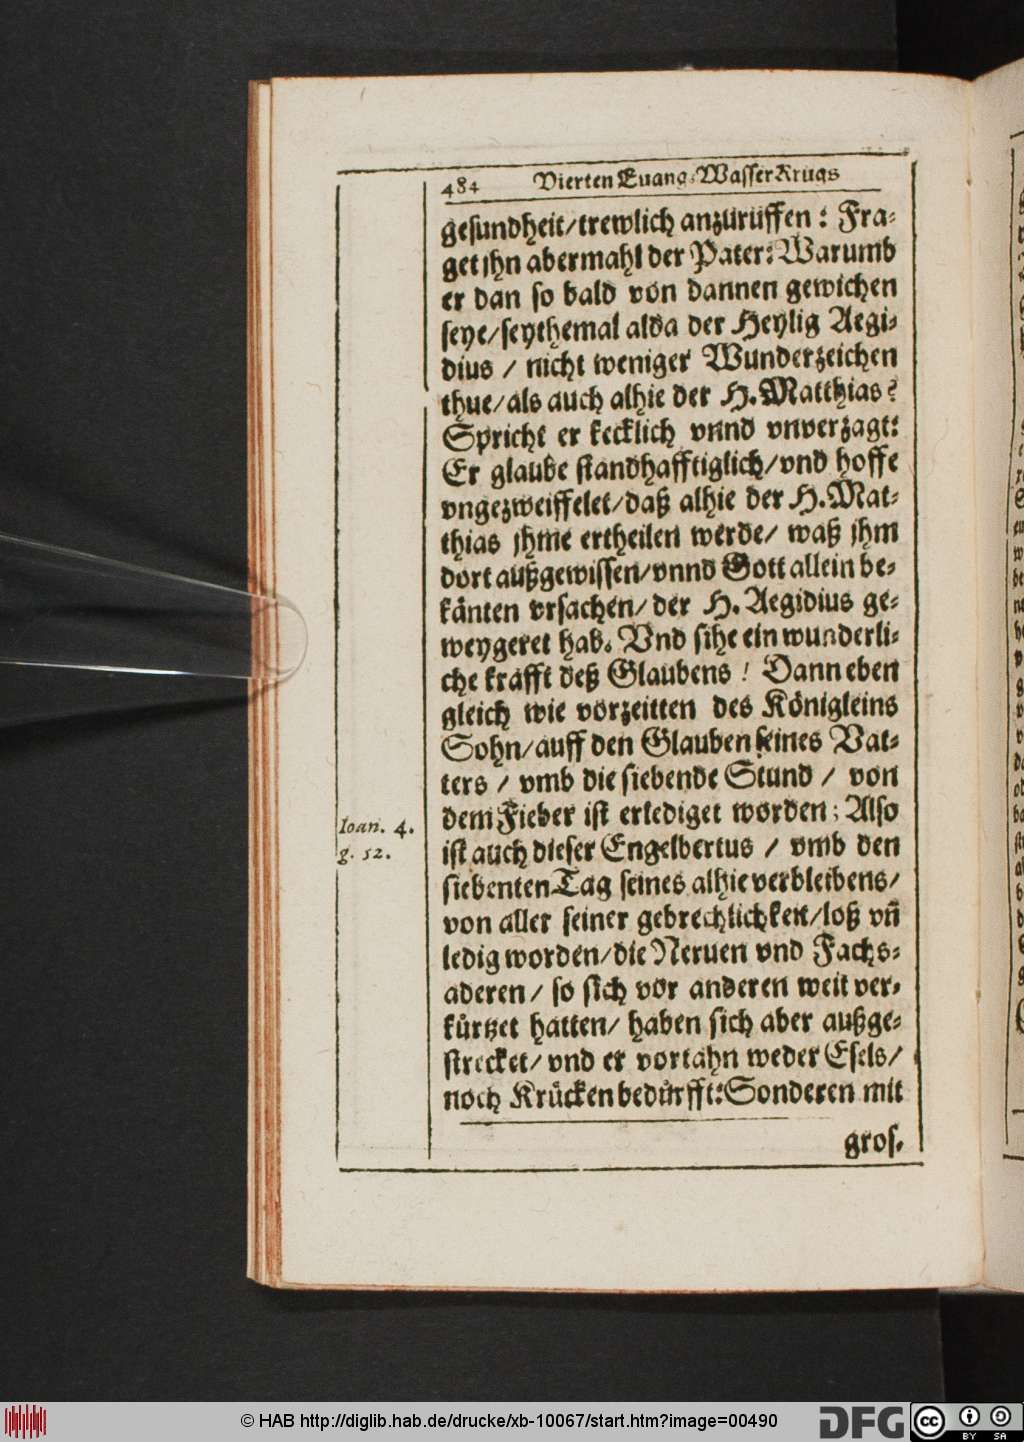 484 Vierten Euang. Wasser Krugs
gesundheit/trewlich anzurüffen: Fra-
get jhn abermahl der Pater: Warumb
er dan so bald von dannen gewichen
seye/seythemal alda der Heylig Aegi-
dius / nicht weniger Wunderzeichen
thue/als auch alhie der H. Matthias?
Spricht er kecklich vnnd vnverzagt:
Er glaube standhafftiglich/vnd hoffe
vngezweiffelet/daß alhie der H. Mat-
thias jhme ertheilen werde/ waß jhm
dort außgewissen/vnnd Gott allein be-
känten vrsachen/ der H. Aegidius ge-
weygeret hab. Vnd sihe ein wunderli-
che krafft deß Glaubens! Dann eben
gleich wie vorzeitten des Königleins
Sohn/auff den Glauben seines Vat-
ters / vmb die siebende Stund / von
dem Fieber ist erlediget worden; Also
Ioan. 4.
g. 52.
ist auch dieser Engelbertus / vmb den
siebenten Tag seines alhie verbleibens/
von aller seiner gebrechlichkeit/loß vñ
ledig worden/die Neruen vnd Fachs-
aderen/ so sich vor anderen weit ver-
kürtzet hatten/ haben sich aber außge-
strecket/ vnd er vortahn weder Esels/
noch Krücken bedürfft: Sonderen mit
gros.
© HAB http://diglib.hab.de/drucke/xb-10067/start.htm?image=00490
DFG
cc
BY SA